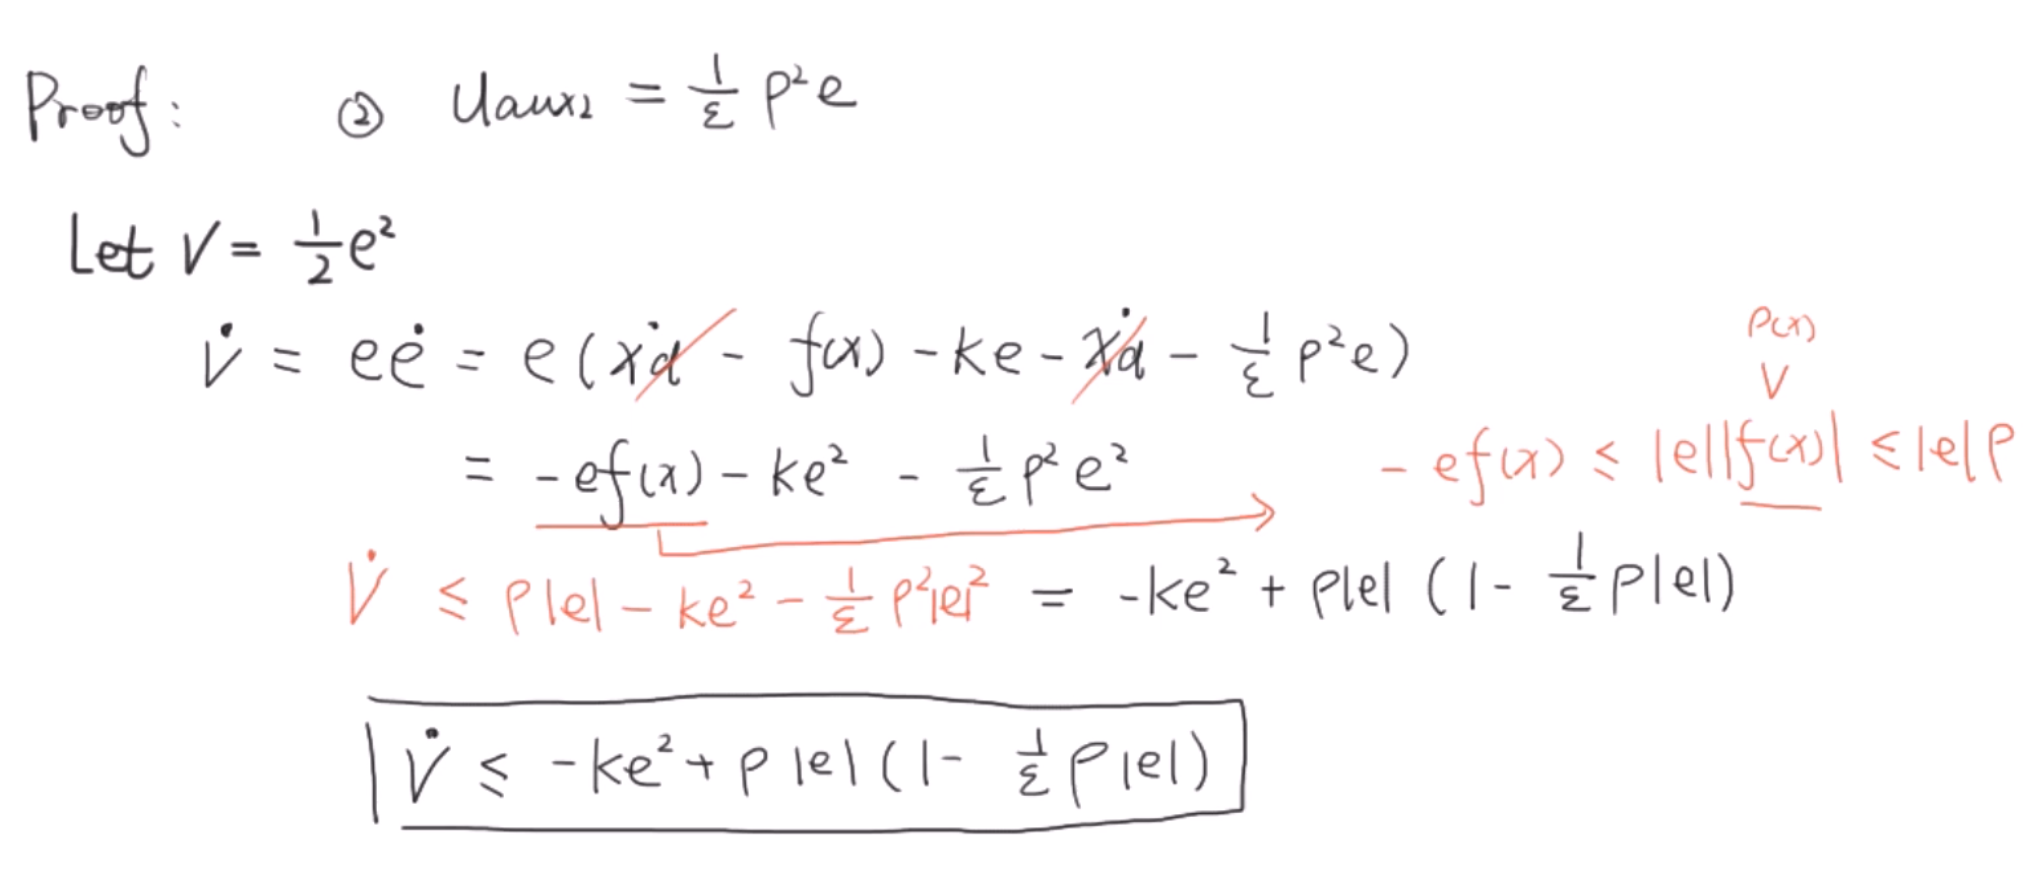 Proof: ② Uaux2 = 1/ε ρ²e
Let V = 1/2 e²
V̇ = eė = e(ẋd - f(x) - ke - ẋd - 1/ε ρ²e)
ρ(x)
V
= -ef(x) - ke² - 1/ε ρ²e²
-ef(x) ≤ |e||f(x)| ≤ |e|ρ
V̇ ≤ ρ|e| - ke² - 1/ε ρ²|e|² = -ke² + ρ|e| (1 - 1/ε ρ|e|)
V̇ ≤ -ke² + ρ|e| (1 - 1/ε ρ|e|)